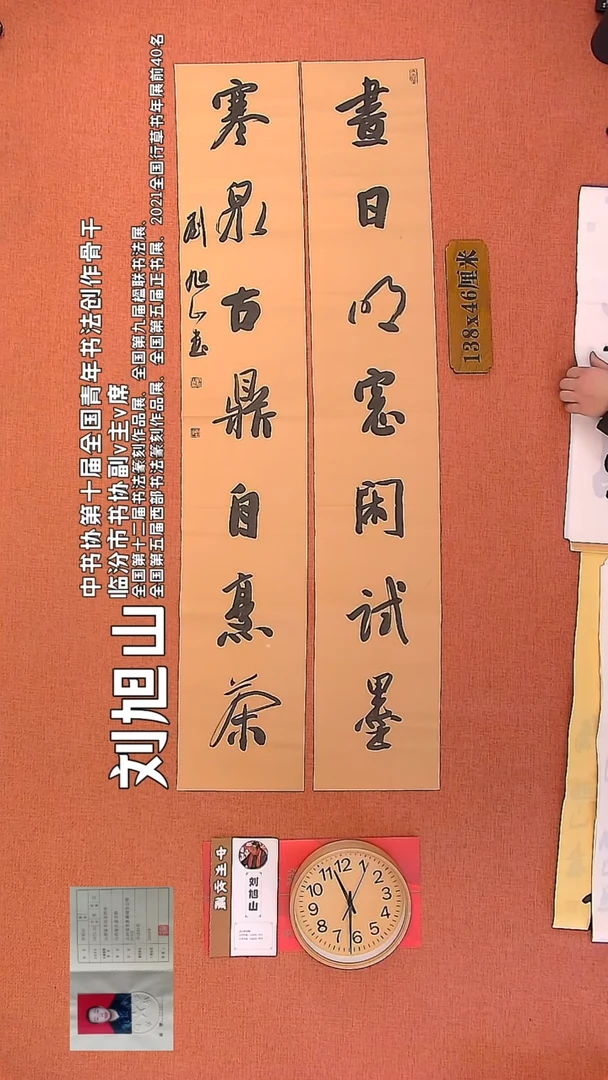 晝日明窓闲試墨
寒泉古鼎自烹茶
刘旭山书
138x46厘米
中书协第十届全国青年书法创作骨干
临汾市书协副v主v席
全国第十二届书法篆刻作品展、全国第九届楹联书法展、
全国第五届西部书法篆刻作品展、全国第五届正书展、2021全国行草书年展前40名
刘旭山
刘旭山
12
1
2
3
4
5
6
7
8
9
10
11